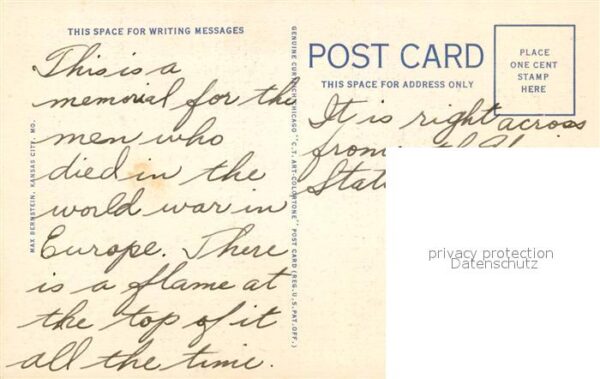 THIS SPACE FOR WRITING MESSAGES
This is a
memorial for the
men who
died in the
world war in
Europe. There
is a flame at
the top of it
all the time.
MAX BERNSTEIN, KANSAS CITY, MO.
GENUINE CURTEICH-CHICAGO "C.T. ART-COLORTONE" POST CARD (REG. U.S. PAT. OFF.)
POST CARD
THIS SPACE FOR ADDRESS ONLY
PLACE
ONE CENT
STAMP
HERE
It is right across
from
State
privacy protection
Datenschutz